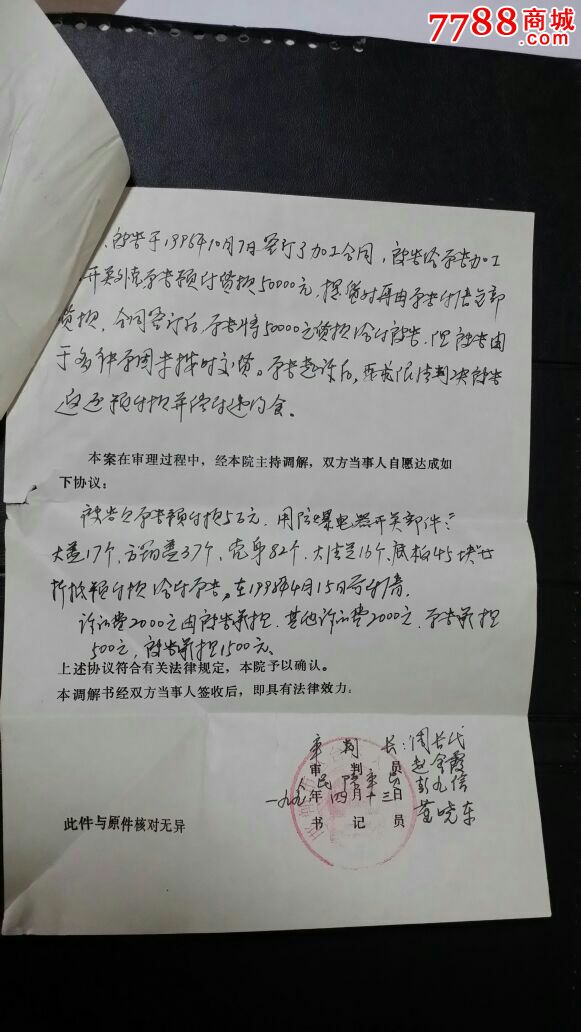 7788商城
被告于1996年10月7日签订了加工合同,被告给原告加工
开关外壳原告预付货款50000元,提货时再由原告付清全部
货款,合同签订后,原告将50000元货款给付被告,但被告由
于多种原因未按时交货。原告起诉后,要求依法判决被告
返还预付款并偿付违约金。
本案在审理过程中,经本院主持调解,双方当事人自愿达成如
下协议:
被告欠原告预付款5万元,用防爆电器开关部件:
大盖17个,方盖37个,壳身82个,大法兰16个,底板45块
折抵预付款给付原告,在1998年4月15日前付清。
诉讼费2000元由被告承担,其他诉讼费2000元,原告承担
500元,被告承担1500元、
上述协议符合有关法律规定,本院予以确认。
本调解书经双方当事人签收后,即具有法律效力:
审判长:周长代
审判员 赵金霞
人民陪审员 彭九信
一九九 年四月十三日
书记员 董晓东
此件与原件核对无异